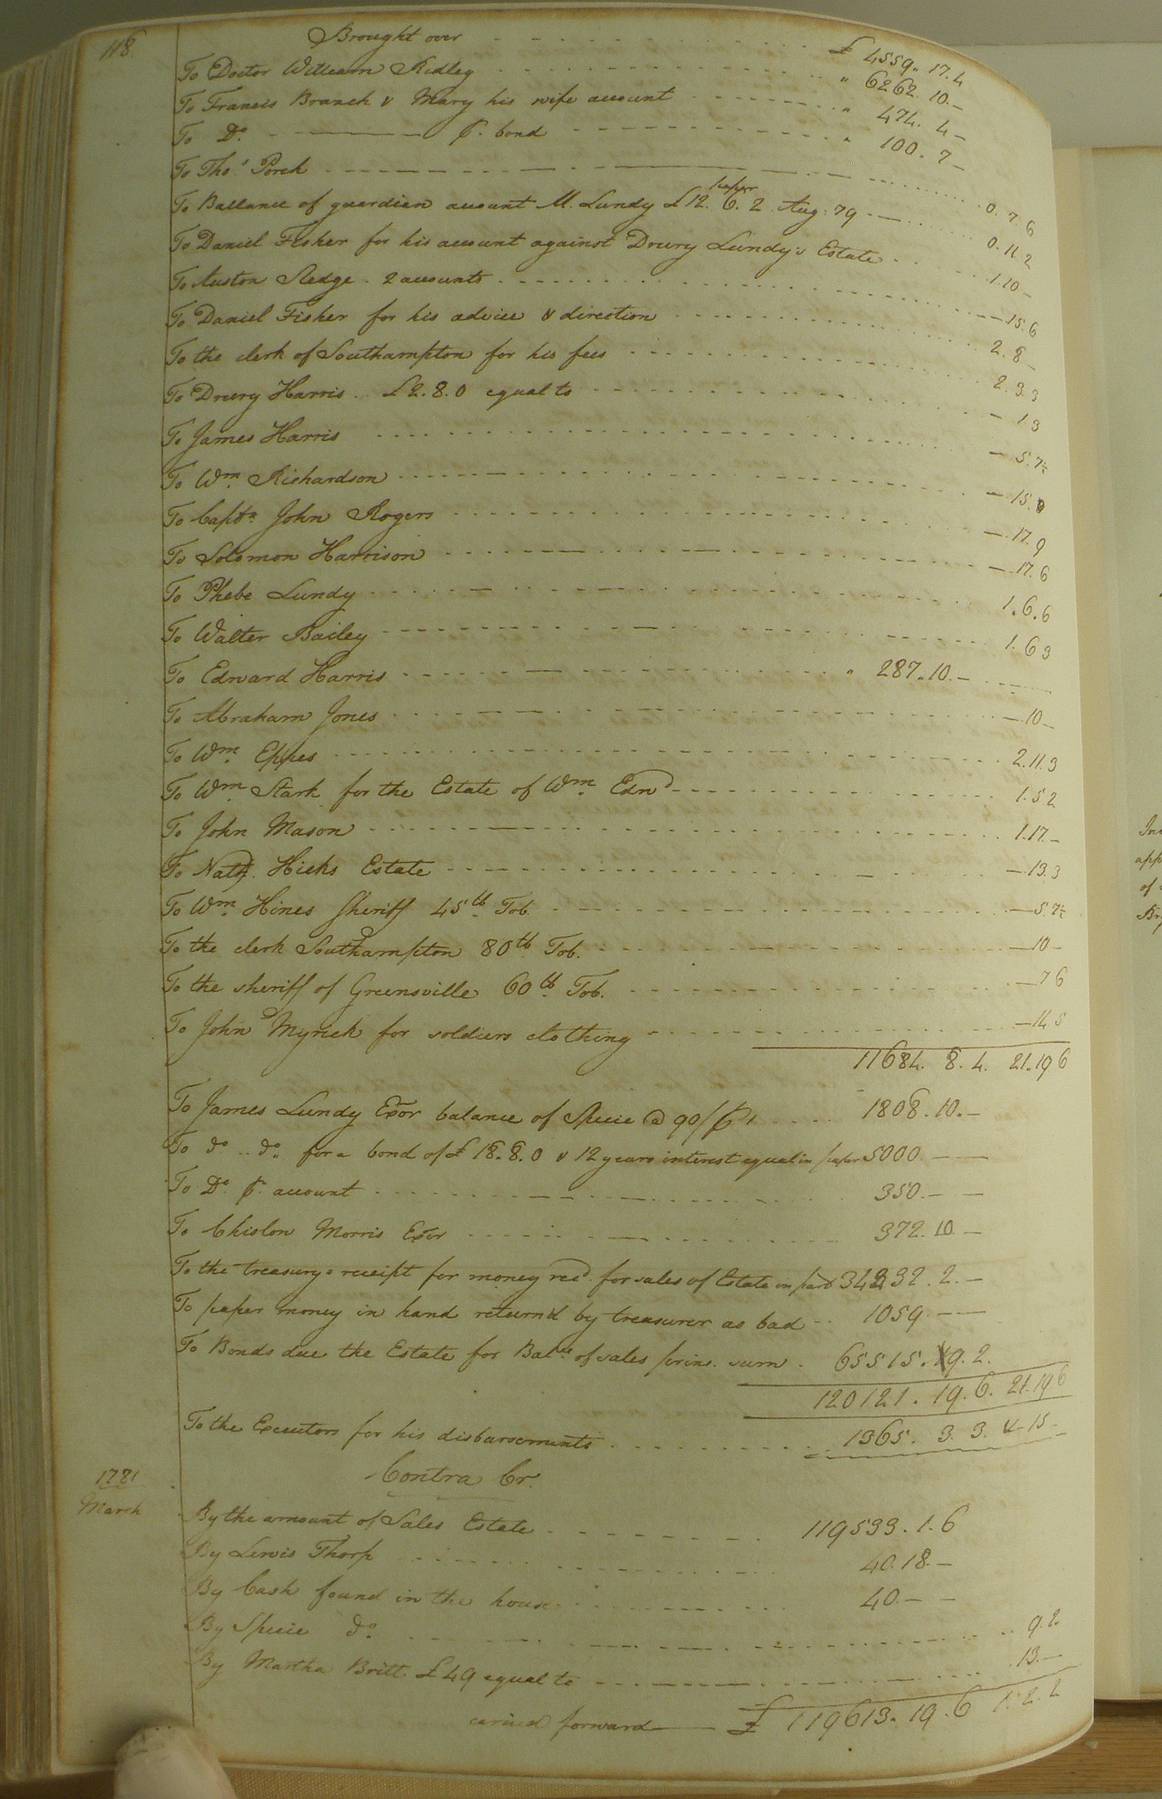 118
Brought over £ 4559. 17. 4
To Doctor William Ridley " 6262. 10. -
To Francis Branch & Mary his wife account " 474. 4 -
To Do. ℔. bond " 100. 7 -
To Thos. Porch 0. 7. 6
To Ballance of guardian account M. Lundy £12. 6. 2 paper Aug. 79 0. 11. 2
To Daniel Fisher for his account against Drury Lundy's Estate 1. 10 -
To Auston Sledge. 2 accounts — 15. 6
To Daniel Fisher for his advice & direction 2. 8 -
To the clerk of Southampton for his fees 2. 3. 3
To Drury Harris. £2. 8. 0 equal to — 1. 3
To James Harris — 5. 7½
To Wm. Richardson — 15. 0
To Capt. John Rogers — 17. 9
To Solomon Harrison — 17. 6
To Phebe Lundy 1. 6. 6
To Walter Bailey 1. 6 3
To Edward Harris " 287. 10. -
To Abraham Jones — 10 -
To Wm. Eppes 2. 11. 3
To Wm. Stark for the Estate of Wm. Edwd 1. 5 2
To John Mason 1. 17. -
To Nathl. Hicks Estate — 13. 3
To Wm. Hines Sheriff 45 lb. Tob. — 5. 7½
To the clerk Southampton 80 lb. Tob. — 10 -
To the sheriff of Greensville 60 lb. Tob. — 7 6
To John Myrick for soldiers clothing — 14. 5
11684. 8. 4. 21. 19 6
To James Lundy Exor balance of Specie @ 90/℔ 1 1808. 10. -
To do. do. for a bond of £18. 8. 0 & 12 years interest equal in paper 5000 — —
To Do. ℔. account 350. — —
To Chislon Morris Exor 372. 10 —
To the treasury's receipt for money recd. for sales of Estate in part 34332. 2. —
To paper money in hand return'd by treasurer as bad 1059 — —
To Bonds due the Estate for Balce. of sales prins. sum. 65515. 19. 2.
120121. 19. 6. 21. 19 6
To the Executors for his disbursements 1365. 3. 3. 4. 15 -
Contra Cr.
1781
March
By the amount of Sales Estate 119533. 1. 6
By Lewis Thorp 40. 18. —
By Cash found in the house 40. — —
By Specie do. 9. 2
By Martha Britt. £49 equal to 13. —
carried forward £ 119613. 19. 6 1. 2. 2